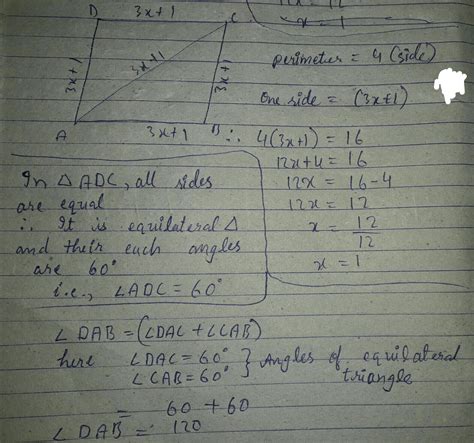 12x = 12
x = 1
D 3x+1 C
3x+1
3x+1
3x+1
A 3x+1 B
perimeter = 4 (side)
One side = (3x+1)
∴ 4(3x+1) = 16
12x+4 = 16
12x = 16-4
12x = 12
x = 12/12
x = 1
In △ ADC, all sides
are equal
∴ It is equilateral △
and their each angles
are 60°
i.e., ∠ADC = 60°
∠ DAB = (∠DAC + ∠CAB)
here ∠DAC = 60° } Angles of equilateral
∠CAB = 60° triangle
= 60 + 60
∠ DAB = 120